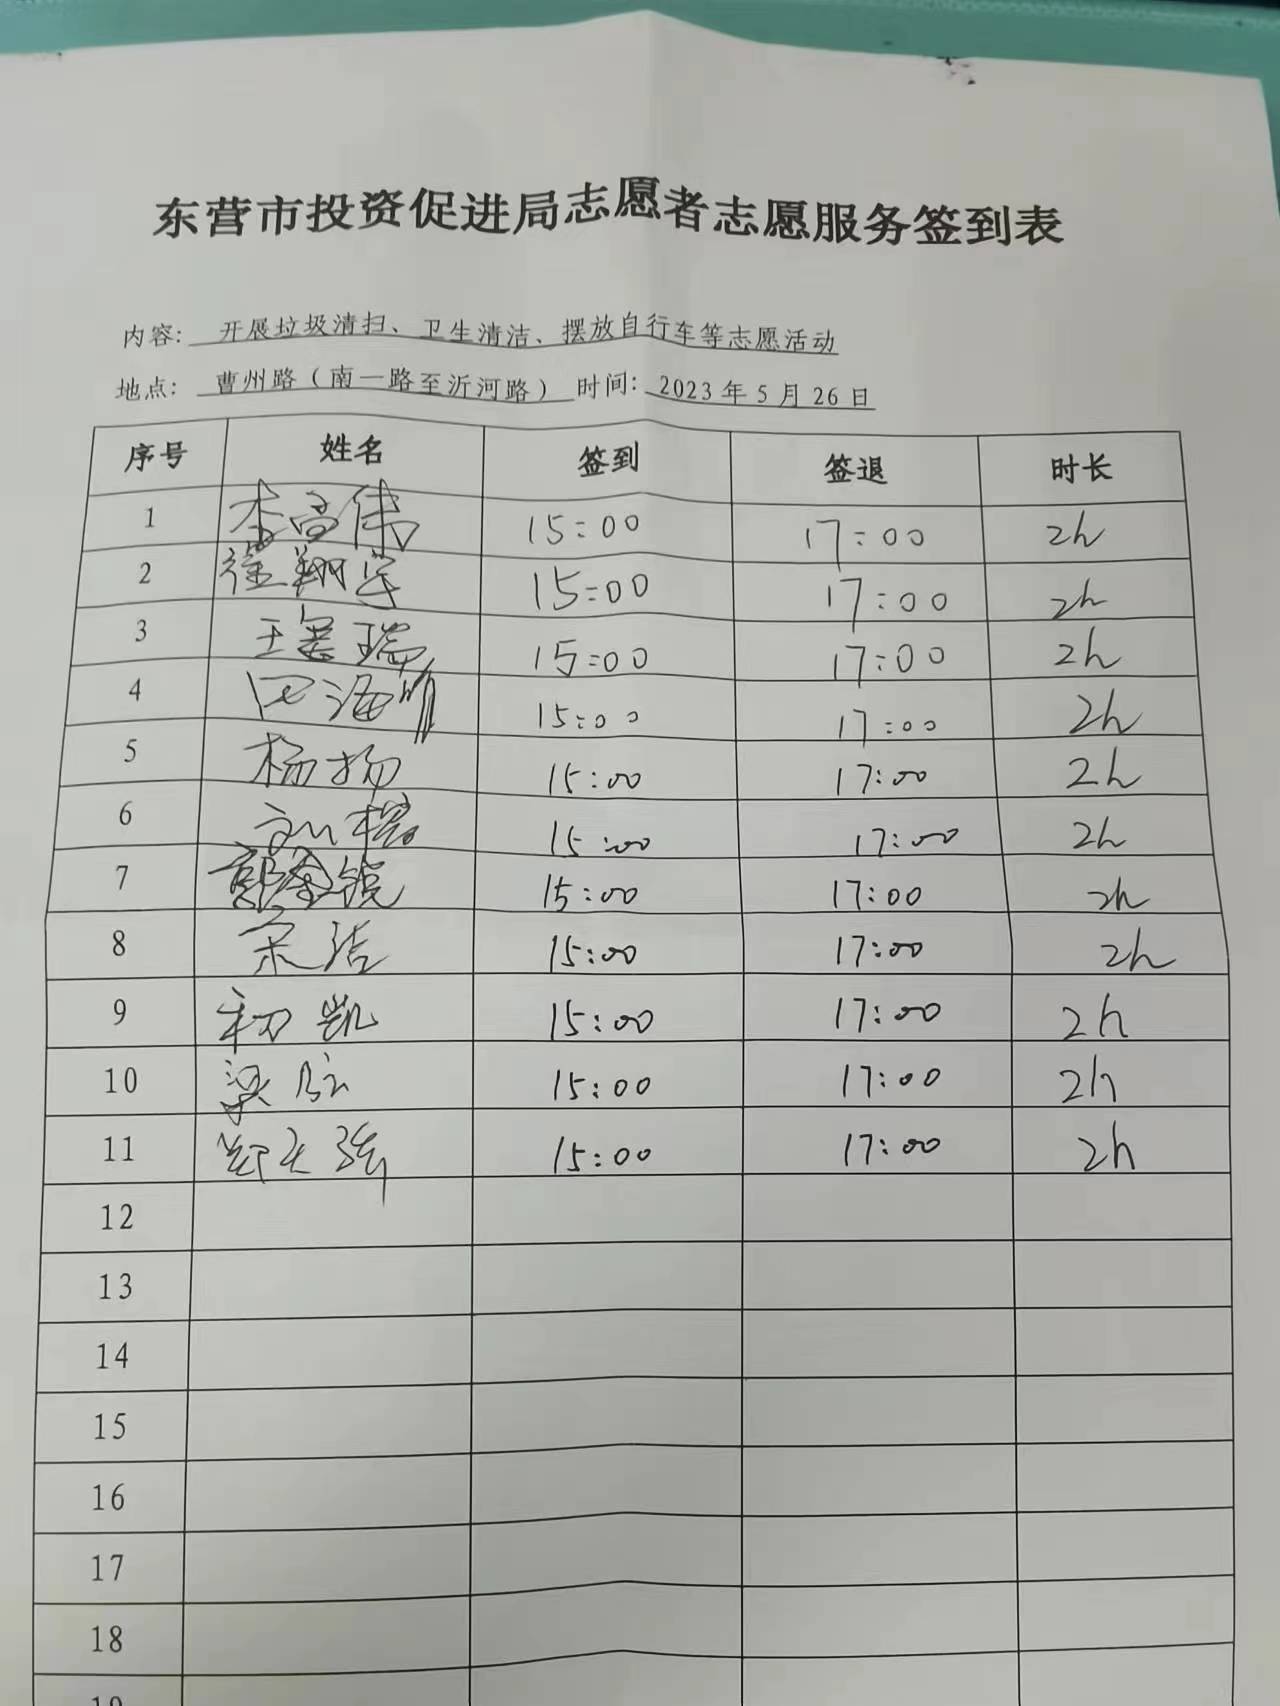 东营市投资促进局志愿者志愿服务签到表
内容: 开展垃圾清扫、卫生清洁、摆放自行车等志愿活动
地点: 曹州路（南一路至沂河路） 时间: 2023年5月26日
序号 姓名 签到 签退 时长
1 李高伟 15:00 17:00 2h
2 15:00 17:00 2h
3 15:00 17:00 2h
4 15:00 17:00 2h
5 杨扬 15:00 17:00 2h
6 15:00 17:00 2h
7 15:00 17:00 2h
8 宋洁 15:00 17:00 2h
9 初凯 15:00 17:00 2h
10 15:00 17:00 2h
11 15:00 17:00 2h
12
13
14
15
16
17
18
19